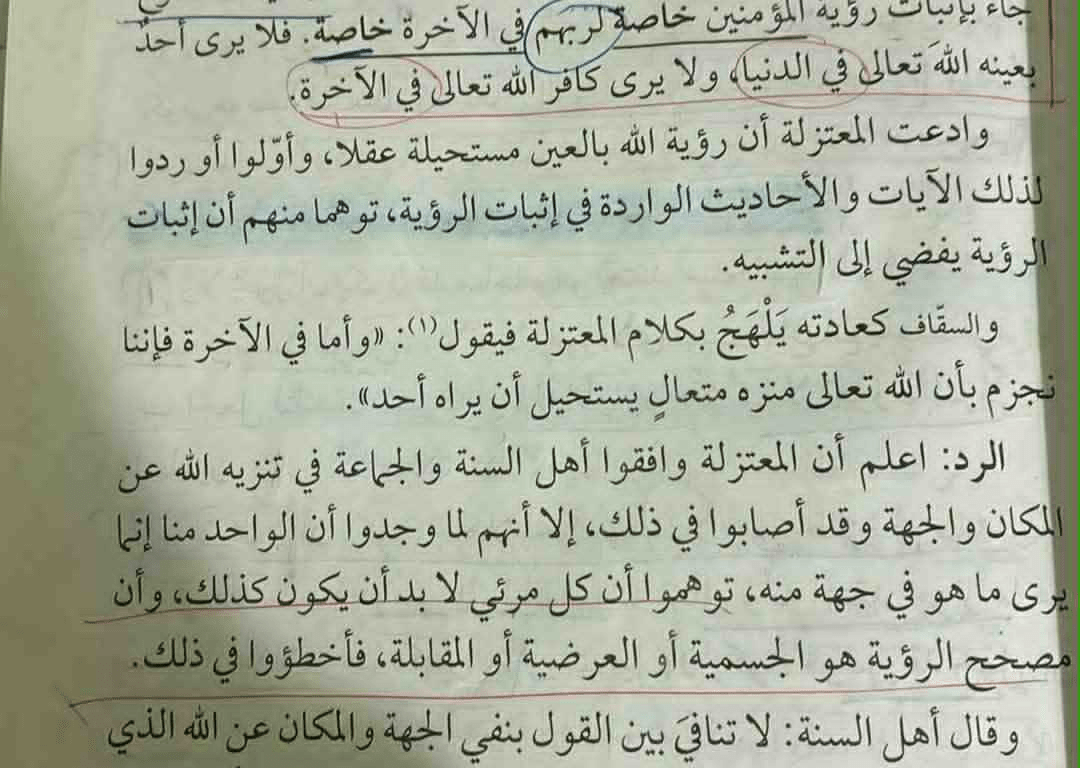 جاء بإثبات رؤية المؤمنين خاصة لربهم في الآخرة خاصة. فلا يرى أحدٌ
بعينه اللهَ تعالى في الدنيا، ولا يرى كافر الله تعالى في الآخرة.
وادعت المعتزلة أن رؤية الله بالعين مستحيلة عقلا، وأوّلوا أو ردوا
لذلك الآيات والأحاديث الواردة في إثبات الرؤية، توهما منهم أن إثبات
الرؤية يفضي إلى التشبيه.
والسقّاف كعادته يَلْهَجُ بكلام المعتزلة فيقول(١): «وأما في الآخرة فإننا
نجزم بأن الله تعالى منزه متعالٍ يستحيل أن يراه أحد».
الرد: اعلم أن المعتزلة وافقوا أهل السنة والجماعة في تنزيه الله عن
المكان والجهة وقد أصابوا في ذلك، إلا أنهم لما وجدوا أن الواحد منا إنما
يرى ما هو في جهة منه، توهموا أن كل مرئي لا بد أن يكون كذلك، وأن
مصحح الرؤية هو الجسمية أو العرضية أو المقابلة، فأخطؤوا في ذلك.
وقال أهل السنة: لا تنافيَ بين القول بنفي الجهة والمكان عن الله الذي